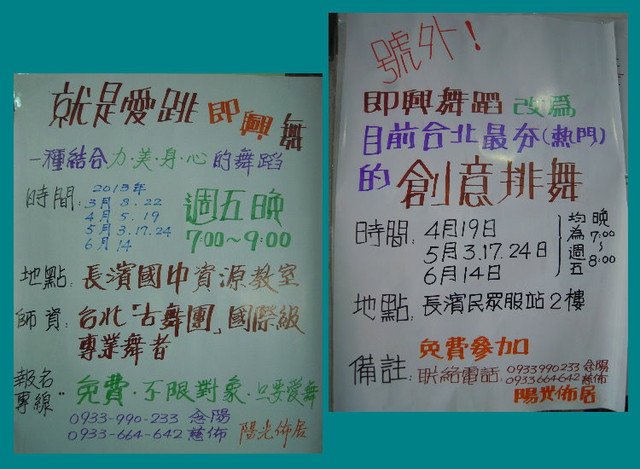 就是愛跳即興舞
一種結合力·美·身·心的舞蹈
時間: 2013年
3月8.22
4月5.19
5月3.17.24
6月14
週五晚
7:00~9:00
地點: 長濱國中資源教室
師資: 台北「古舞團」國際級
專業舞者
報名
專線: 免費·不限對象·只要愛舞
0933-990-233 念陽
0933-664-642 慈佈
陽光佈居
號外!
即興舞蹈改為
目前台北最夯(熱門)
的創意排舞
時間: 4月19日
5月3.17.24日
6月14日
均為週五
晚
7:00
~
8:00
地點: 長濱民眾服站2樓
免費參加
備註: 聯絡電話 0933990233 念陽
0933664642 慈佈
陽光佈居